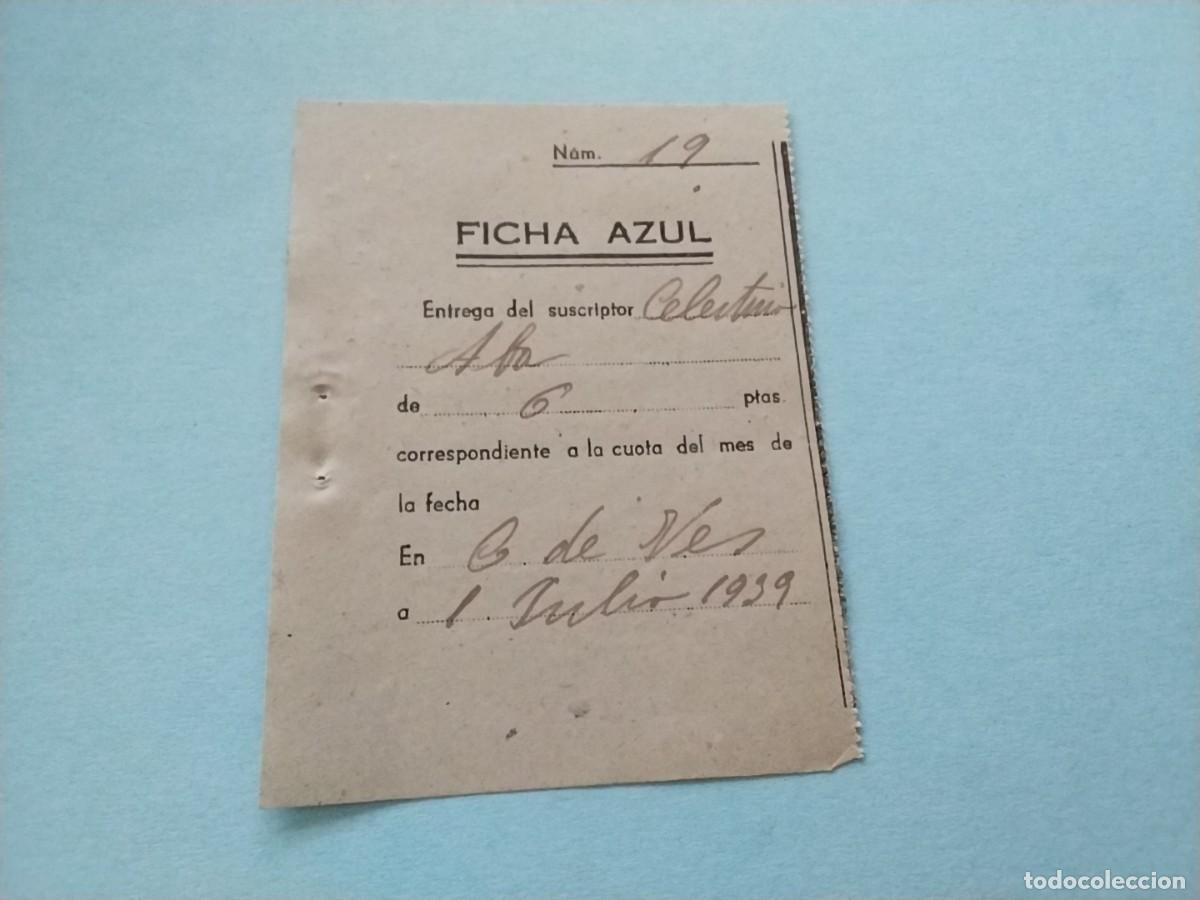 Núm. 19
FICHA AZUL
Entrega del suscriptor Celestino
Alba
de 6 ptas.
correspondiente a la cuota del mes de
la fecha
En C. de Ves
a 1 Julio 1939
todocoleccion